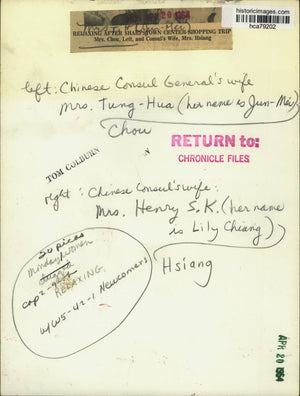 historicimages.com
hca79202
RELAXING AFTER SHARPSTOWN CENTER SHOPPING TRIP
Mrs. Chou, Left, and Consul's Wife, Mrs. Hsiang
left: Chinese Consul General's wife
Mrs. Tung-Hua (her name is Jun-Mei)
Chou
RETURN to:
CHRONICLE FILES
TOM COLBURN
right: Chinese Consul's wife:
Mrs. Henry S.K. (her name
is Lily Chiang)
Hsiang
Monday women
RELAXING
W/W5-42-1 Newcomers
APR 20 1964